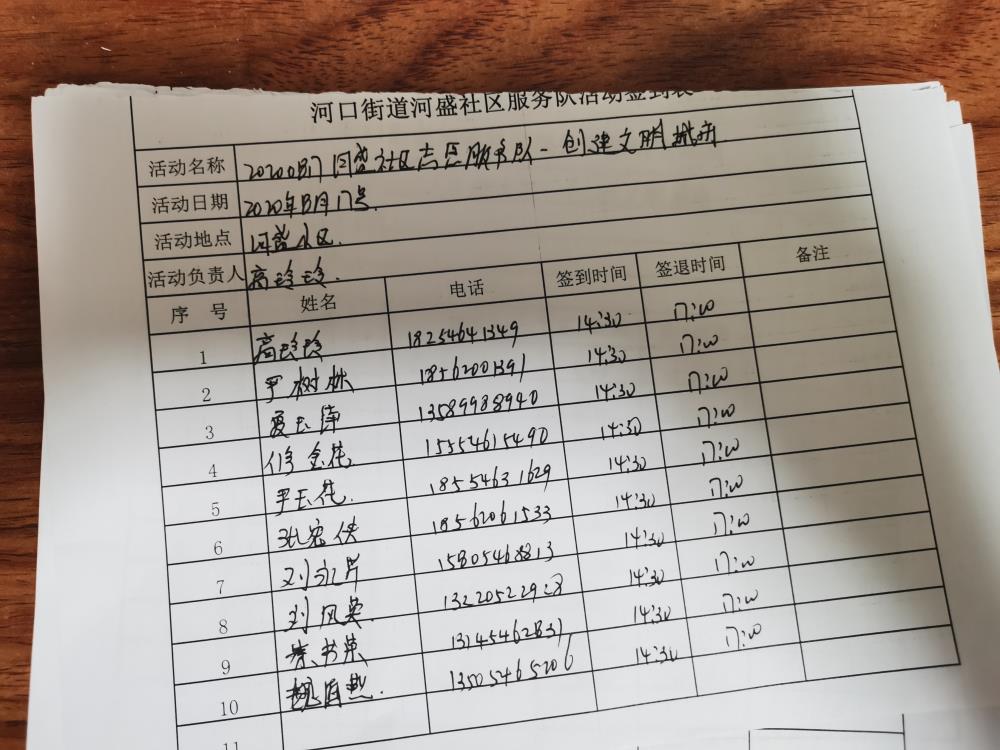 河口街道河盛社区服务队活动签到表
活动名称 20200817河盛社区志愿服务队-创建文明城市
活动日期 2020年8月17号.
活动地点 河盛小区.
活动负责人 高珍珍.
序号 姓名 电话 签到时间 签退时间 备注
1 高珍珍 18254641349 14:30 17:00
2 尹树林 18562001391 14:30 17:00
3 夏玉萍 13589988940 14:30 17:00
4 修金花. 15554615490 14:30 17:00
5 尹玉花. 18554631629 14:30 17:00
6 张宏侠 18562061533 14:30 17:00
7 刘永芹 15805468813 14:30 17:00
8 刘风英. 13220522928 14:30 17:00
9 书英 14:30 17:00
10 13505465206 14:30 17:00
11